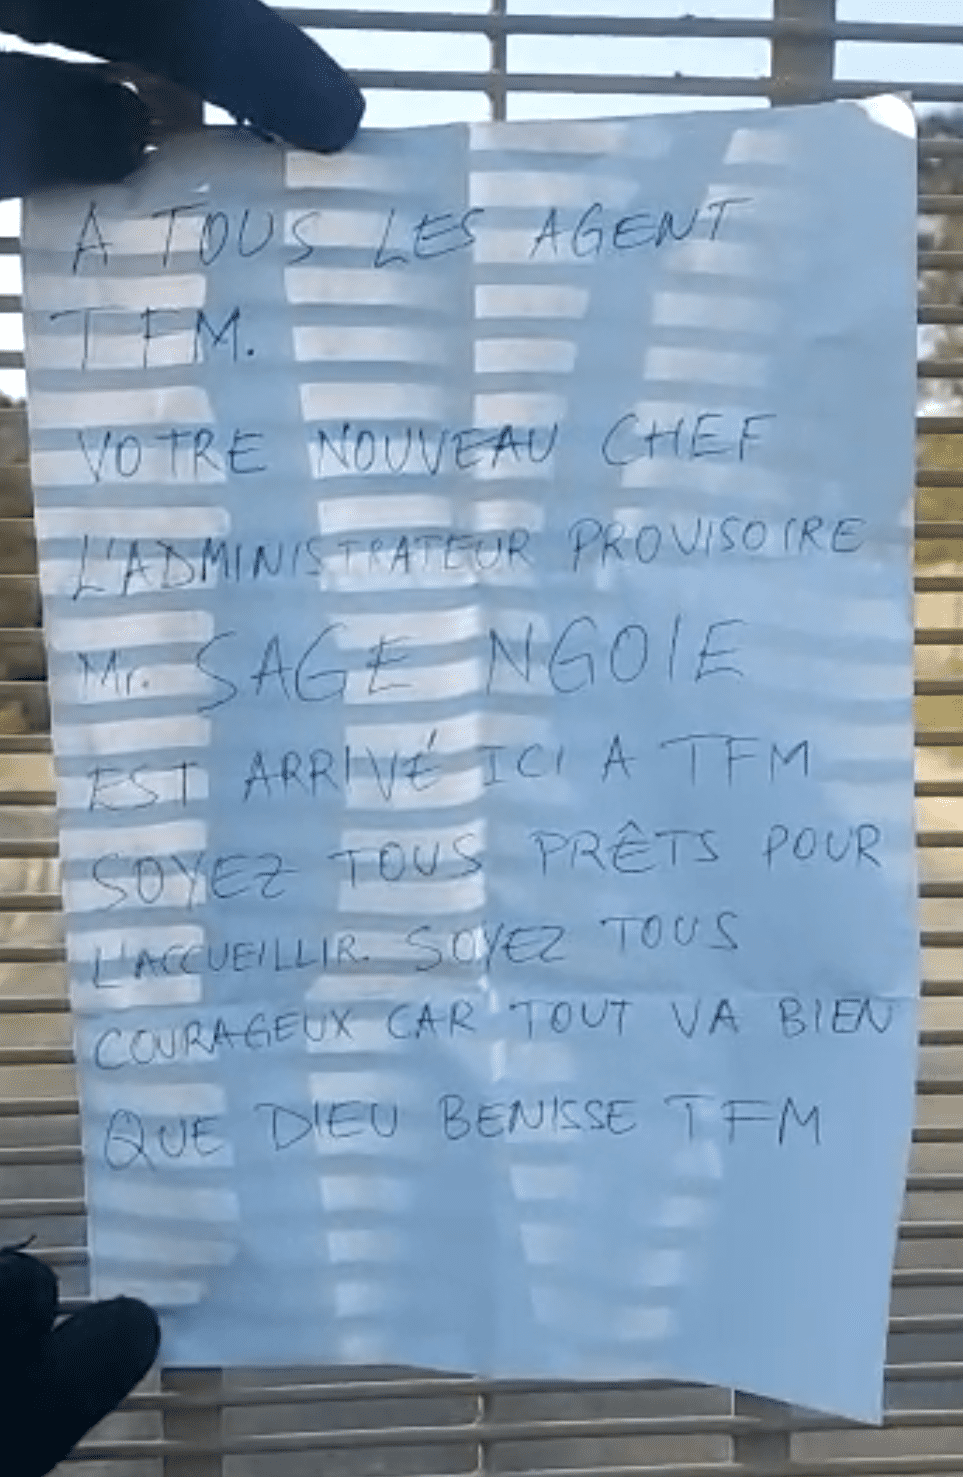 A TOUS LES AGENT
TFM.
VOTRE NOUVEAU CHEF
L'ADMINISTRATEUR PROVISOIRE
Mr. SAGE NGOIE
EST ARRIVÉ ICI A TFM
SOYEZ TOUS PRÊTS POUR
L'ACCUEILLIR. SOYEZ TOUS
COURAGEUX CAR TOUT VA BIEN
QUE DIEU BENISSE TFM